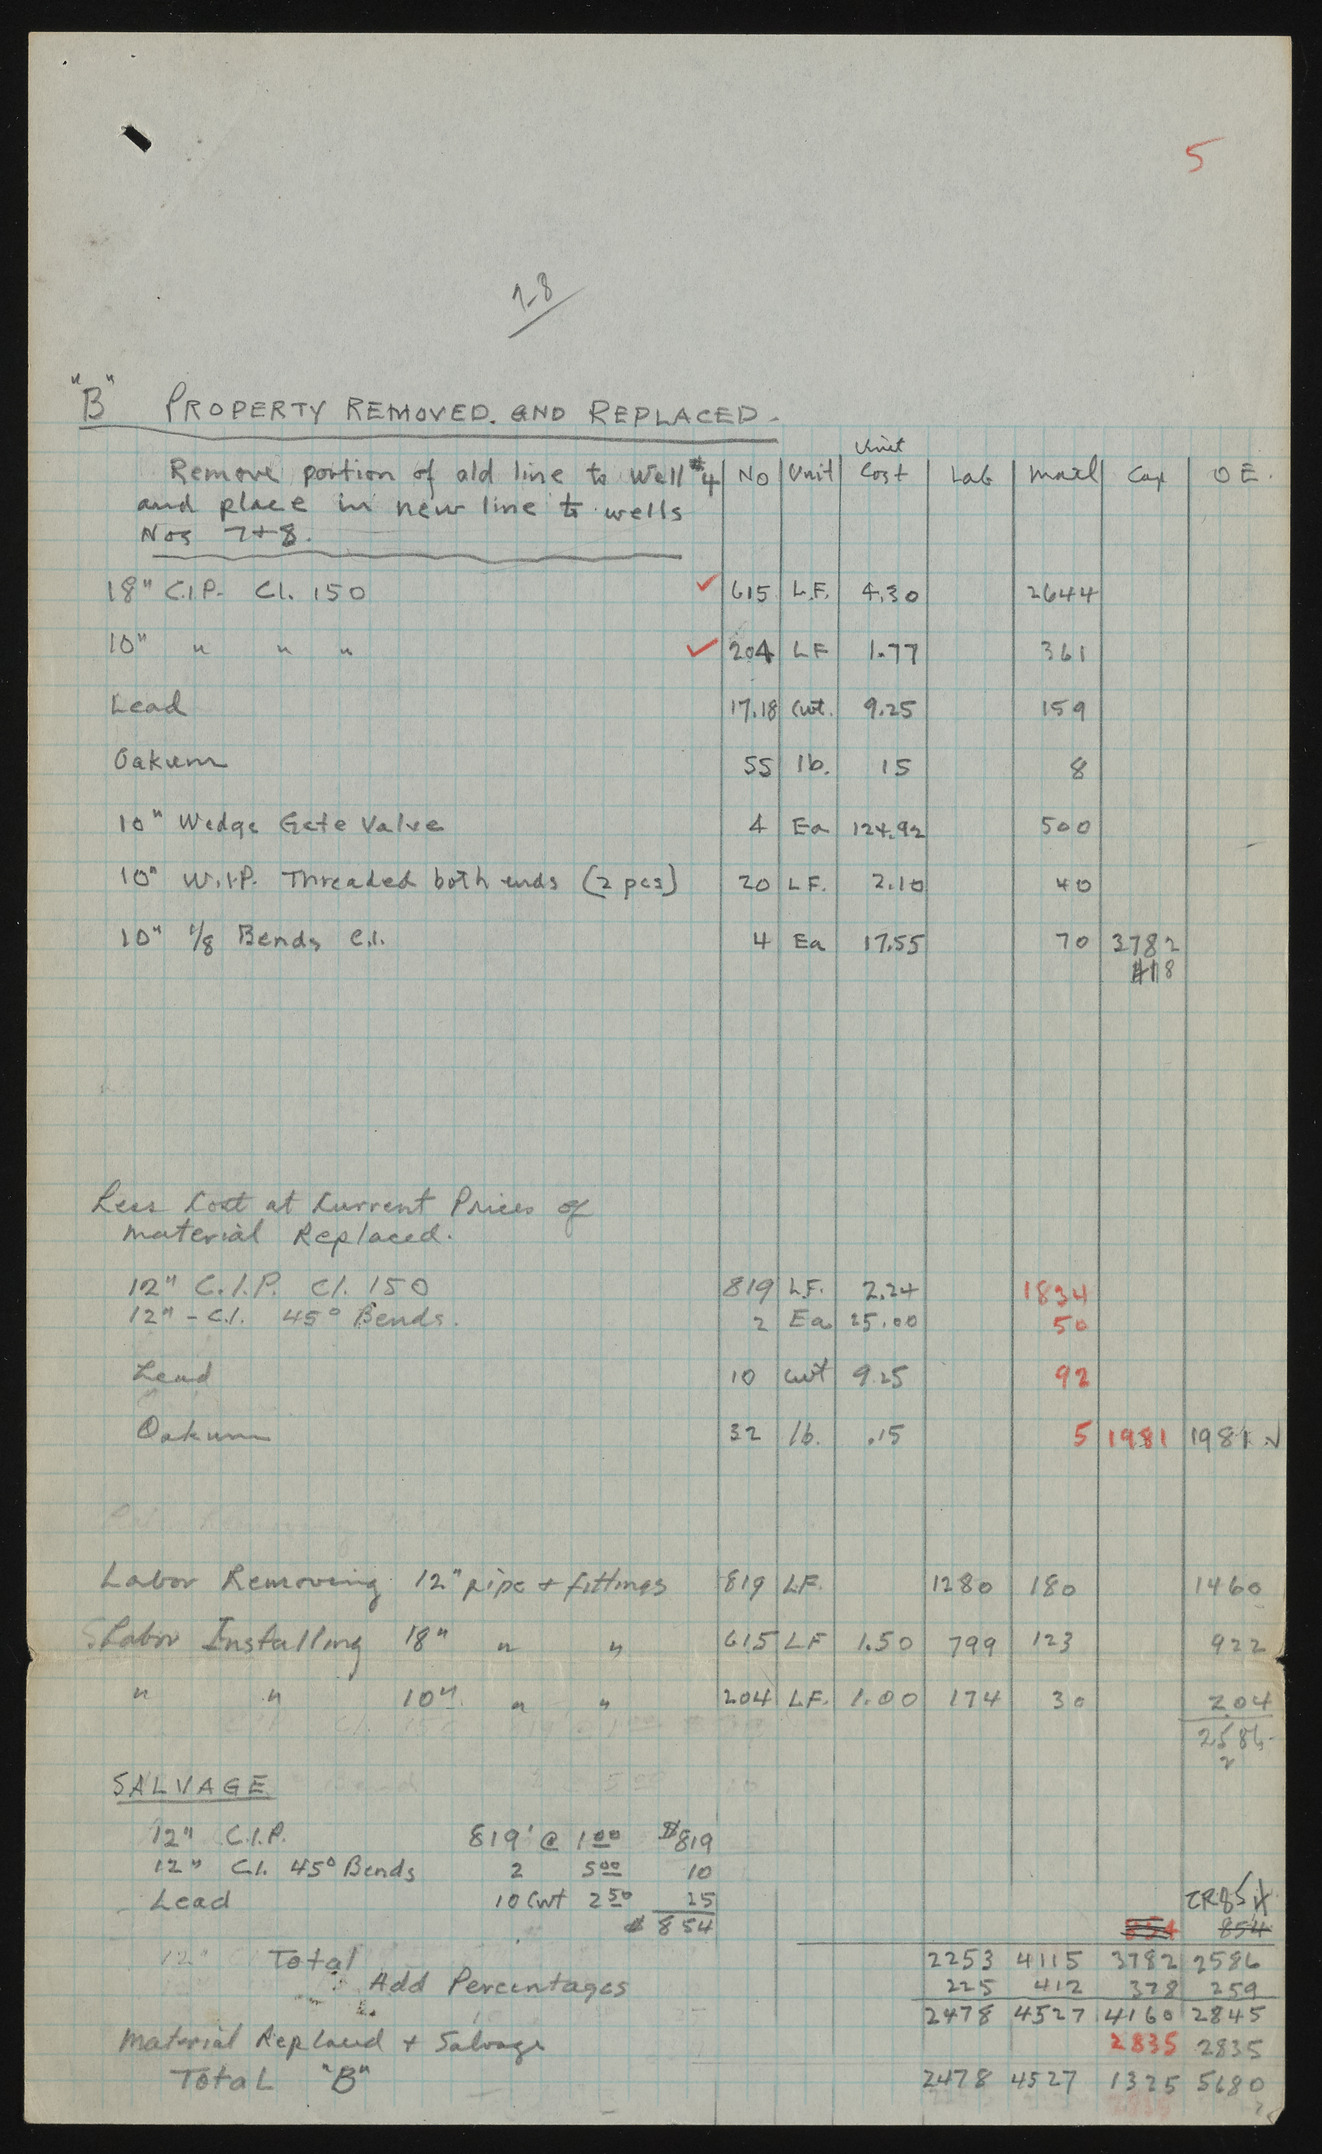 5
7-8
"B" PROPERTY REMOVED. AND REPLACED-
Remove portion of old line to Well #4 No Unit Unit Cost Lab Matl Cap O E.
and place in new line to wells
Nos 7+8.
18" C.I.P. Cl. 150 ✓ 615 L.F. 4.30 2644
10" " " " ✓ 204 LF 1.77 361
Lead 17.18 Cwt. 9.25 159
Oakum 55 lb. 15 8
10" Wedge Gate Valve 4 Ea 124.92 500
10" W.I.P. Threaded both ends (2 pcs) 20 LF. 2.10 40
10" 1/8 Bends C.I. 4 Ea 17.55 70 3782
118
Less Cost at Current Prices of
Material Replaced.
12" C.I.P. Cl. 150 819 L.F. 2.24 1834
12" - C.I. 45° Bends. 2 Ea 25.00 50
Lead 10 cwt 9.25 92
Oakum 32 lb. .15 5 1981 1981 ✓
Labor Removing 12" pipe + fittings 819 LF. 1280 180 1460
Labor Installing 18" " " 615 LF 1.50 799 123 922
" " 10" " " 204 LF. 1.00 174 30 204
2586
SALVAGE
12" C.I.P. 819' @ 1 00 $819
12" C.I. 45° Bends 2 5 00 10
Lead 10 Cwt 2 50 25 CR 854
$ 854 854 854
Total 2253 4115 3782 2586
Add Percentages 225 412 378 259
2478 4527 4160 2845
Material Replaced + Salvage 2835 2835
Total "B" 2478 4527 1325 5680